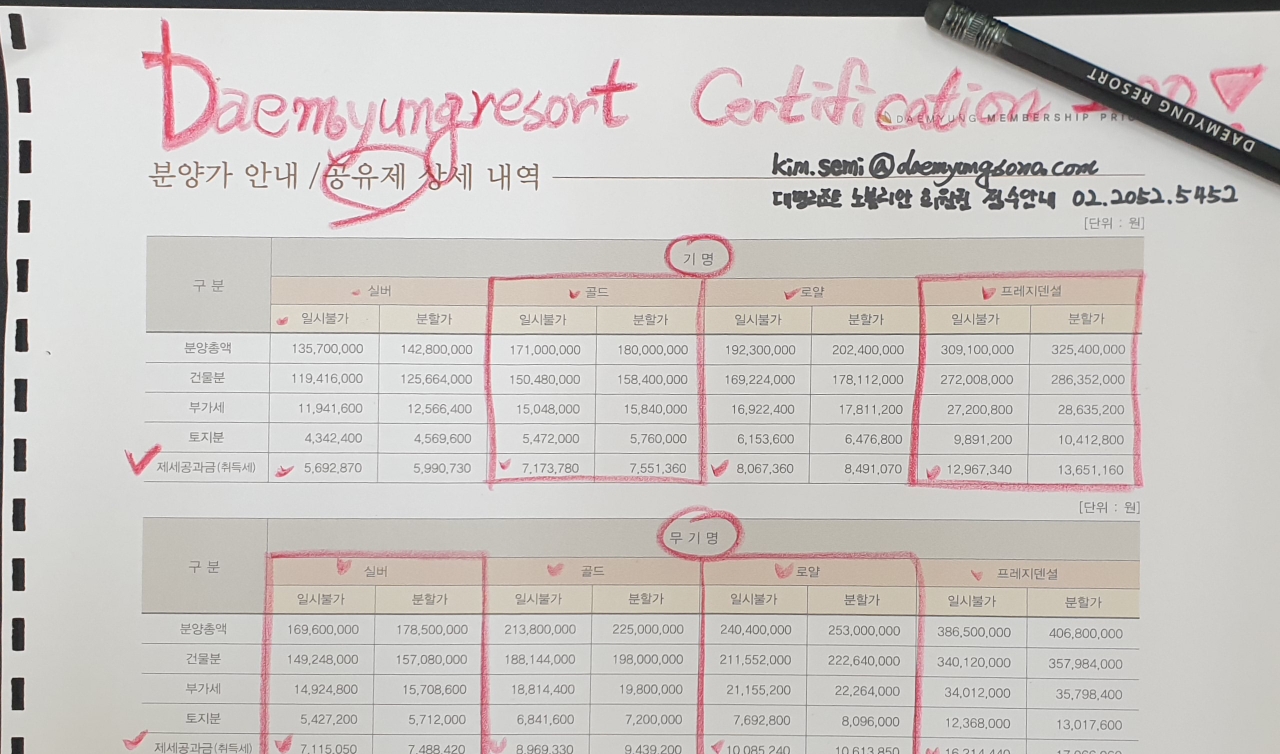 Daemyungresort Certification
DAEMYUNG MEMBERSHIP
DAEMYUNG RESORT
분양가 안내 / 공유제 상세 내역
kim.semi@daemyungsono.com
대명리조트 노블리안 회원권 접수안내 02.2052.5452
[단위 : 원]
구 분 기 명
실버 골드 로얄 프레지덴셜
일시불가 분할가 일시불가 분할가 일시불가 분할가 일시불가 분할가
분양총액 135,700,000 142,800,000 171,000,000 180,000,000 192,300,000 202,400,000 309,100,000 325,400,000
건물분 119,416,000 125,664,000 150,480,000 158,400,000 169,224,000 178,112,000 272,008,000 286,352,000
부가세 11,941,600 12,566,400 15,048,000 15,840,000 16,922,400 17,811,200 27,200,800 28,635,200
토지분 4,342,400 4,569,600 5,472,000 5,760,000 6,153,600 6,476,800 9,891,200 10,412,800
제세공과금(취득세) 5,692,870 5,990,730 7,173,780 7,551,360 8,067,360 8,491,070 12,967,340 13,651,160
[단위 : 원]
구 분 무 기 명
실버 골드 로얄 프레지덴셜
일시불가 분할가 일시불가 분할가 일시불가 분할가 일시불가 분할가
분양총액 169,600,000 178,500,000 213,800,000 225,000,000 240,400,000 253,000,000 386,500,000 406,800,000
건물분 149,248,000 157,080,000 188,144,000 198,000,000 211,552,000 222,640,000 340,120,000 357,984,000
부가세 14,924,800 15,708,600 18,814,400 19,800,000 21,155,200 22,264,000 34,012,000 35,798,400
토지분 5,427,200 5,712,000 6,841,600 7,200,000 7,692,800 8,096,000 12,368,000 13,017,600
제세공과금(취득세) 7,115,050 7,488,420 8,969,330 9,439,200 10,085,240 10,613,850 16,214,440